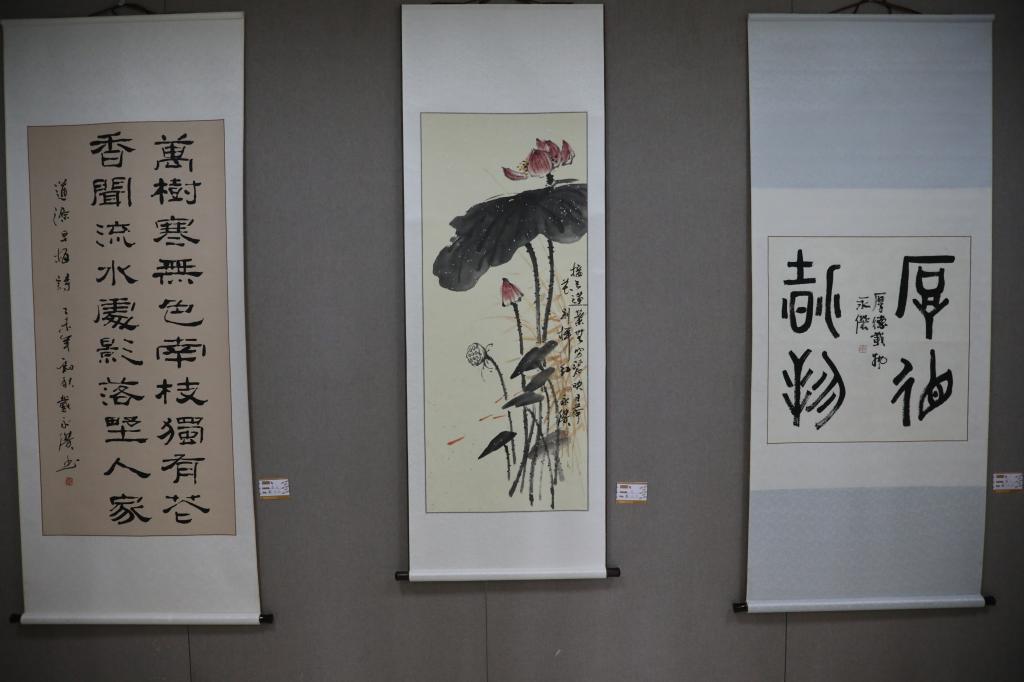 萬樹寒無色南枝獨有花
香聞流水處影落野人家
道源早梅詩 乙未年初秋戴永
接天蓮葉無窮碧映日荷
花別樣紅 永
厚德
載物
厚德載物
永傑